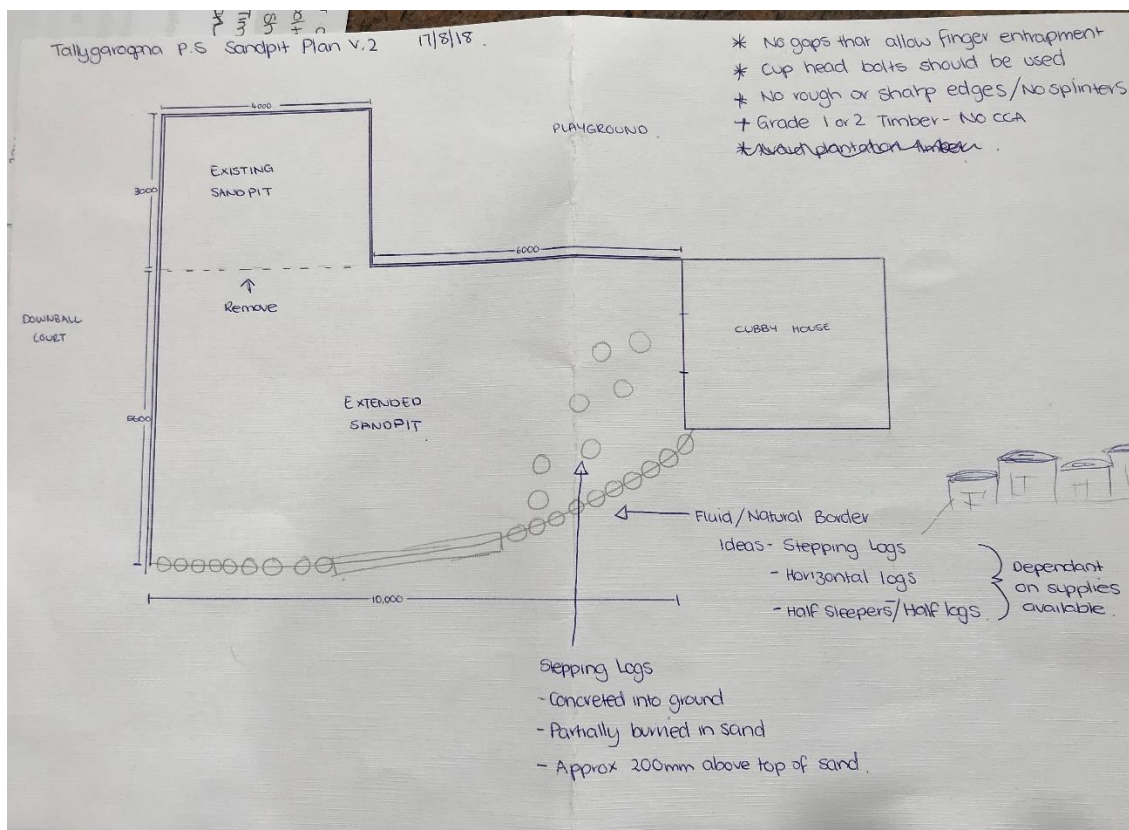 Tallygaroopna P.S Sandpit Plan V.2 17/8/18.
* No gaps that allow finger entrapment
* Cup head bolts should be used
* No rough or sharp edges/No splinters
+ Grade 1 or 2 Timber - NO CCA
4000
PLAYGROUND
EXISTING
SANDPIT
3000
6000
Remove
DOWNBALL
COURT
CUBBY HOUSE
EXTENDED
SANDPIT
Fluid/Natural Border
Ideas - Stepping Logs
- Horizontal logs
- Half Sleepers/Half logs
Dependant
on supplies
available.
10,000
Stepping Logs
- Concreted into ground
- Partially burried in sand
- Approx 200mm above top of sand.